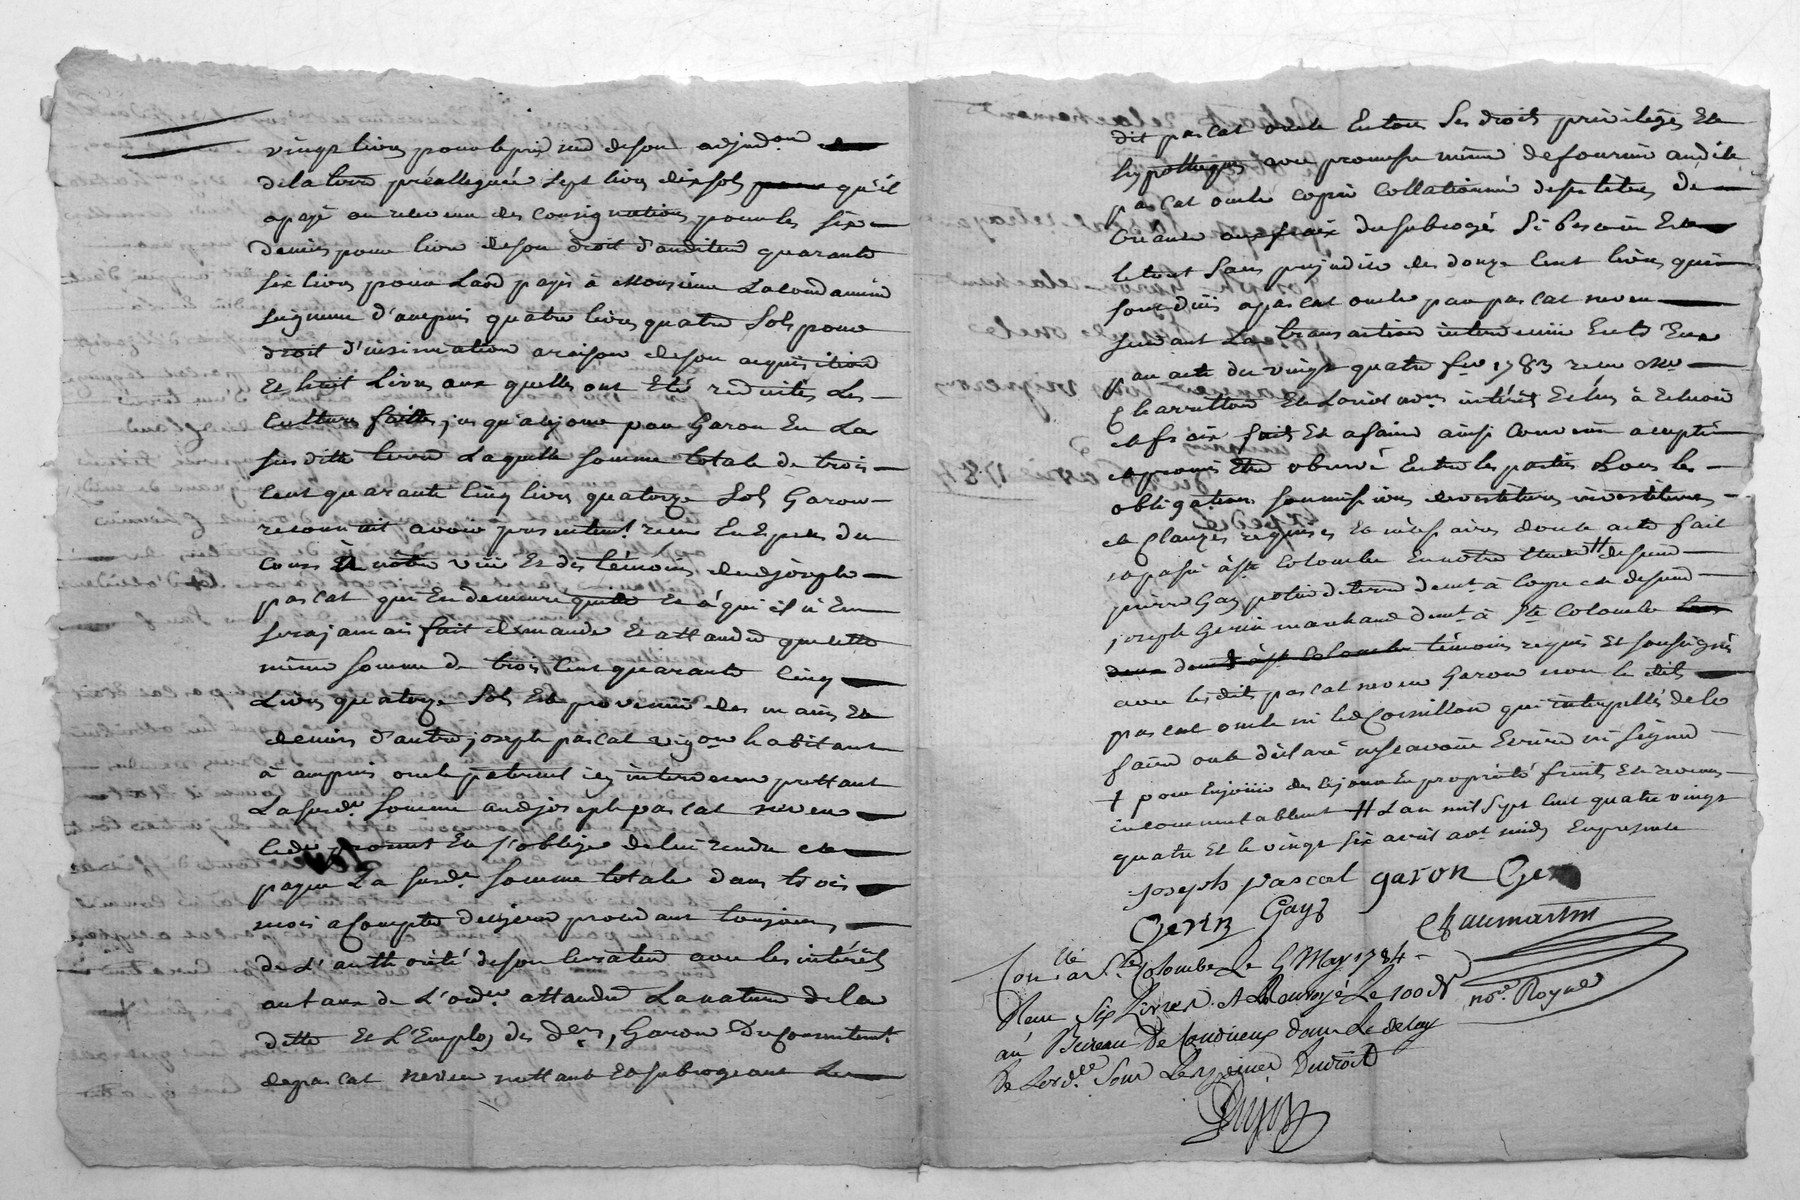 vingt livres pour le prix net de son adjud.on
de la terre préalleguée sept livres dix sols qu'il
a payé au receveur des consignations pour les six
deniers pour livre de son droit d'auditeur quarante
six livres pour Laod payés à Monsieur Lacondamine
seigneur d'ampuis quatre livres quatre sols pour
droit d'insinuation araison de son acquisition
Et huit Livres aux quelles ont Eté reduites Les
Cultures faittes jusqu'acejour par Garon En La
susditte terre Laquelle somme totale de trois
Cent quarante Cinq livres quatorze sols Garon
reconnait avoir presentem.t receu En Espèces du
Cours à nôtre vüe Et des témoins dudjoseph
pascat qui En demeure quitte Et à qui il n'En
sera jamais fait demande Et attandu que cette
même somme de trois Cent quarante Cinq
Livres quatorze sols Est provenüe des mains Et
deniers d'autre joseph pascat vigon habitant
à ampuis oncle paternel icy intervenu prettant
La susd.e somme audjoseph pascat neveu
led. promet Et s'oblige de lui rendre et
payer La susd.e somme totale dans trois
mois acompter decejour procedant toujours
de L'authorité de son curateur avec les intérêts
au taux de L'ord.ce attandu La nature de la
dette Et L'Employ des d.ers, Garon Du Consentem.t
depascat neveu mettant Et subrogeant Le
dit pascat oncle En tous ses droits privilèges Et
hypotheques avec promesse même de fournir audit
pascat oncle copie Collationnée des titres de
Créance aux fraix du subrogés si besoin Est
le tout sans prejudice des douze Cent livres qui
sont düs apascat oncle par pascat neveu
suivant La transaction intervenüe Entr'Eux
par acte du vingt quatre f.er 1783 receu M.e
Charretton Et Loriol no.res intérêts Echus à Echoir
et fraix faits Et afaire ainsi Convenu accepté
et promis Etre observé Entre les parties sous les
obligations soumissions devestitures investitures
et Clauzes requises Et nécessaires dont acte fait
et passé à S.te Colombe En notre Etude # de sieur
pierre Gay potier deterre dem.t à Coyre et de sieur
joseph Gerin marchand dem.t à S.te Colombe
témoins requis Et soussignés
avec lesdits pascat neveu Garon non le dit
pascat oncle ni led Cornillon qui interpellés de le
faire ont déclaré ne sçavoir Ecrire ni signer
† pour En jouir des cejour En propriété fruits Et revenus
incommutablement # L'an mil sept cent quatre vingt
quatre Et le vingt six avril avt midy En presence
Joseph pascal garon Ger
Gerin Gay
Chaumartin
no.re Royal
Con.lé a S.te Colombe Le 5 May 1784
Receu Six Livres et Renvoyé Le 100.e d.r
au Bureau De Condrieux dans Le delay
De L'ord.ce Sous Les peines Dudroit